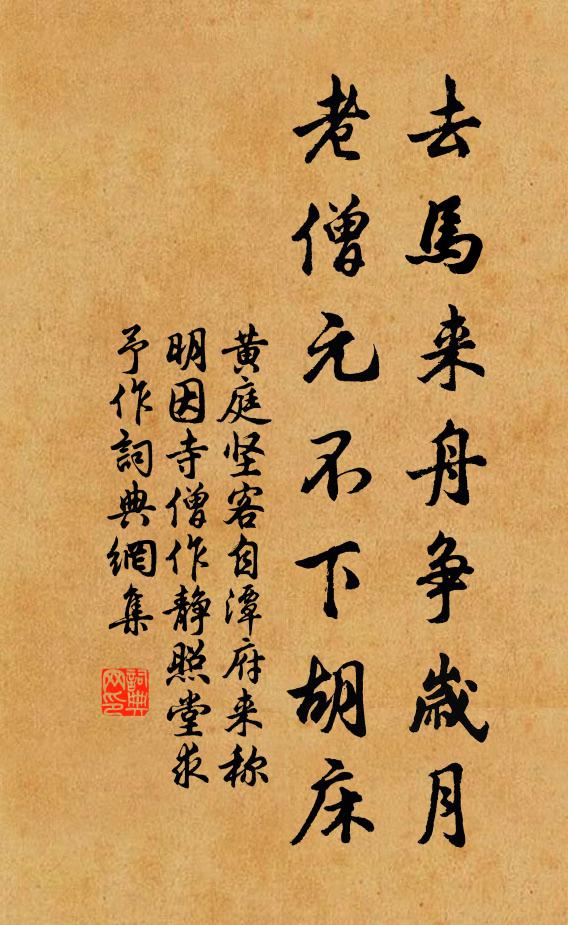 去馬来舟争歲月
老僧元不下胡床
黄庭坚客自潭府来称
明因寺僧作静照堂求
予作詞典網集
詞典网印